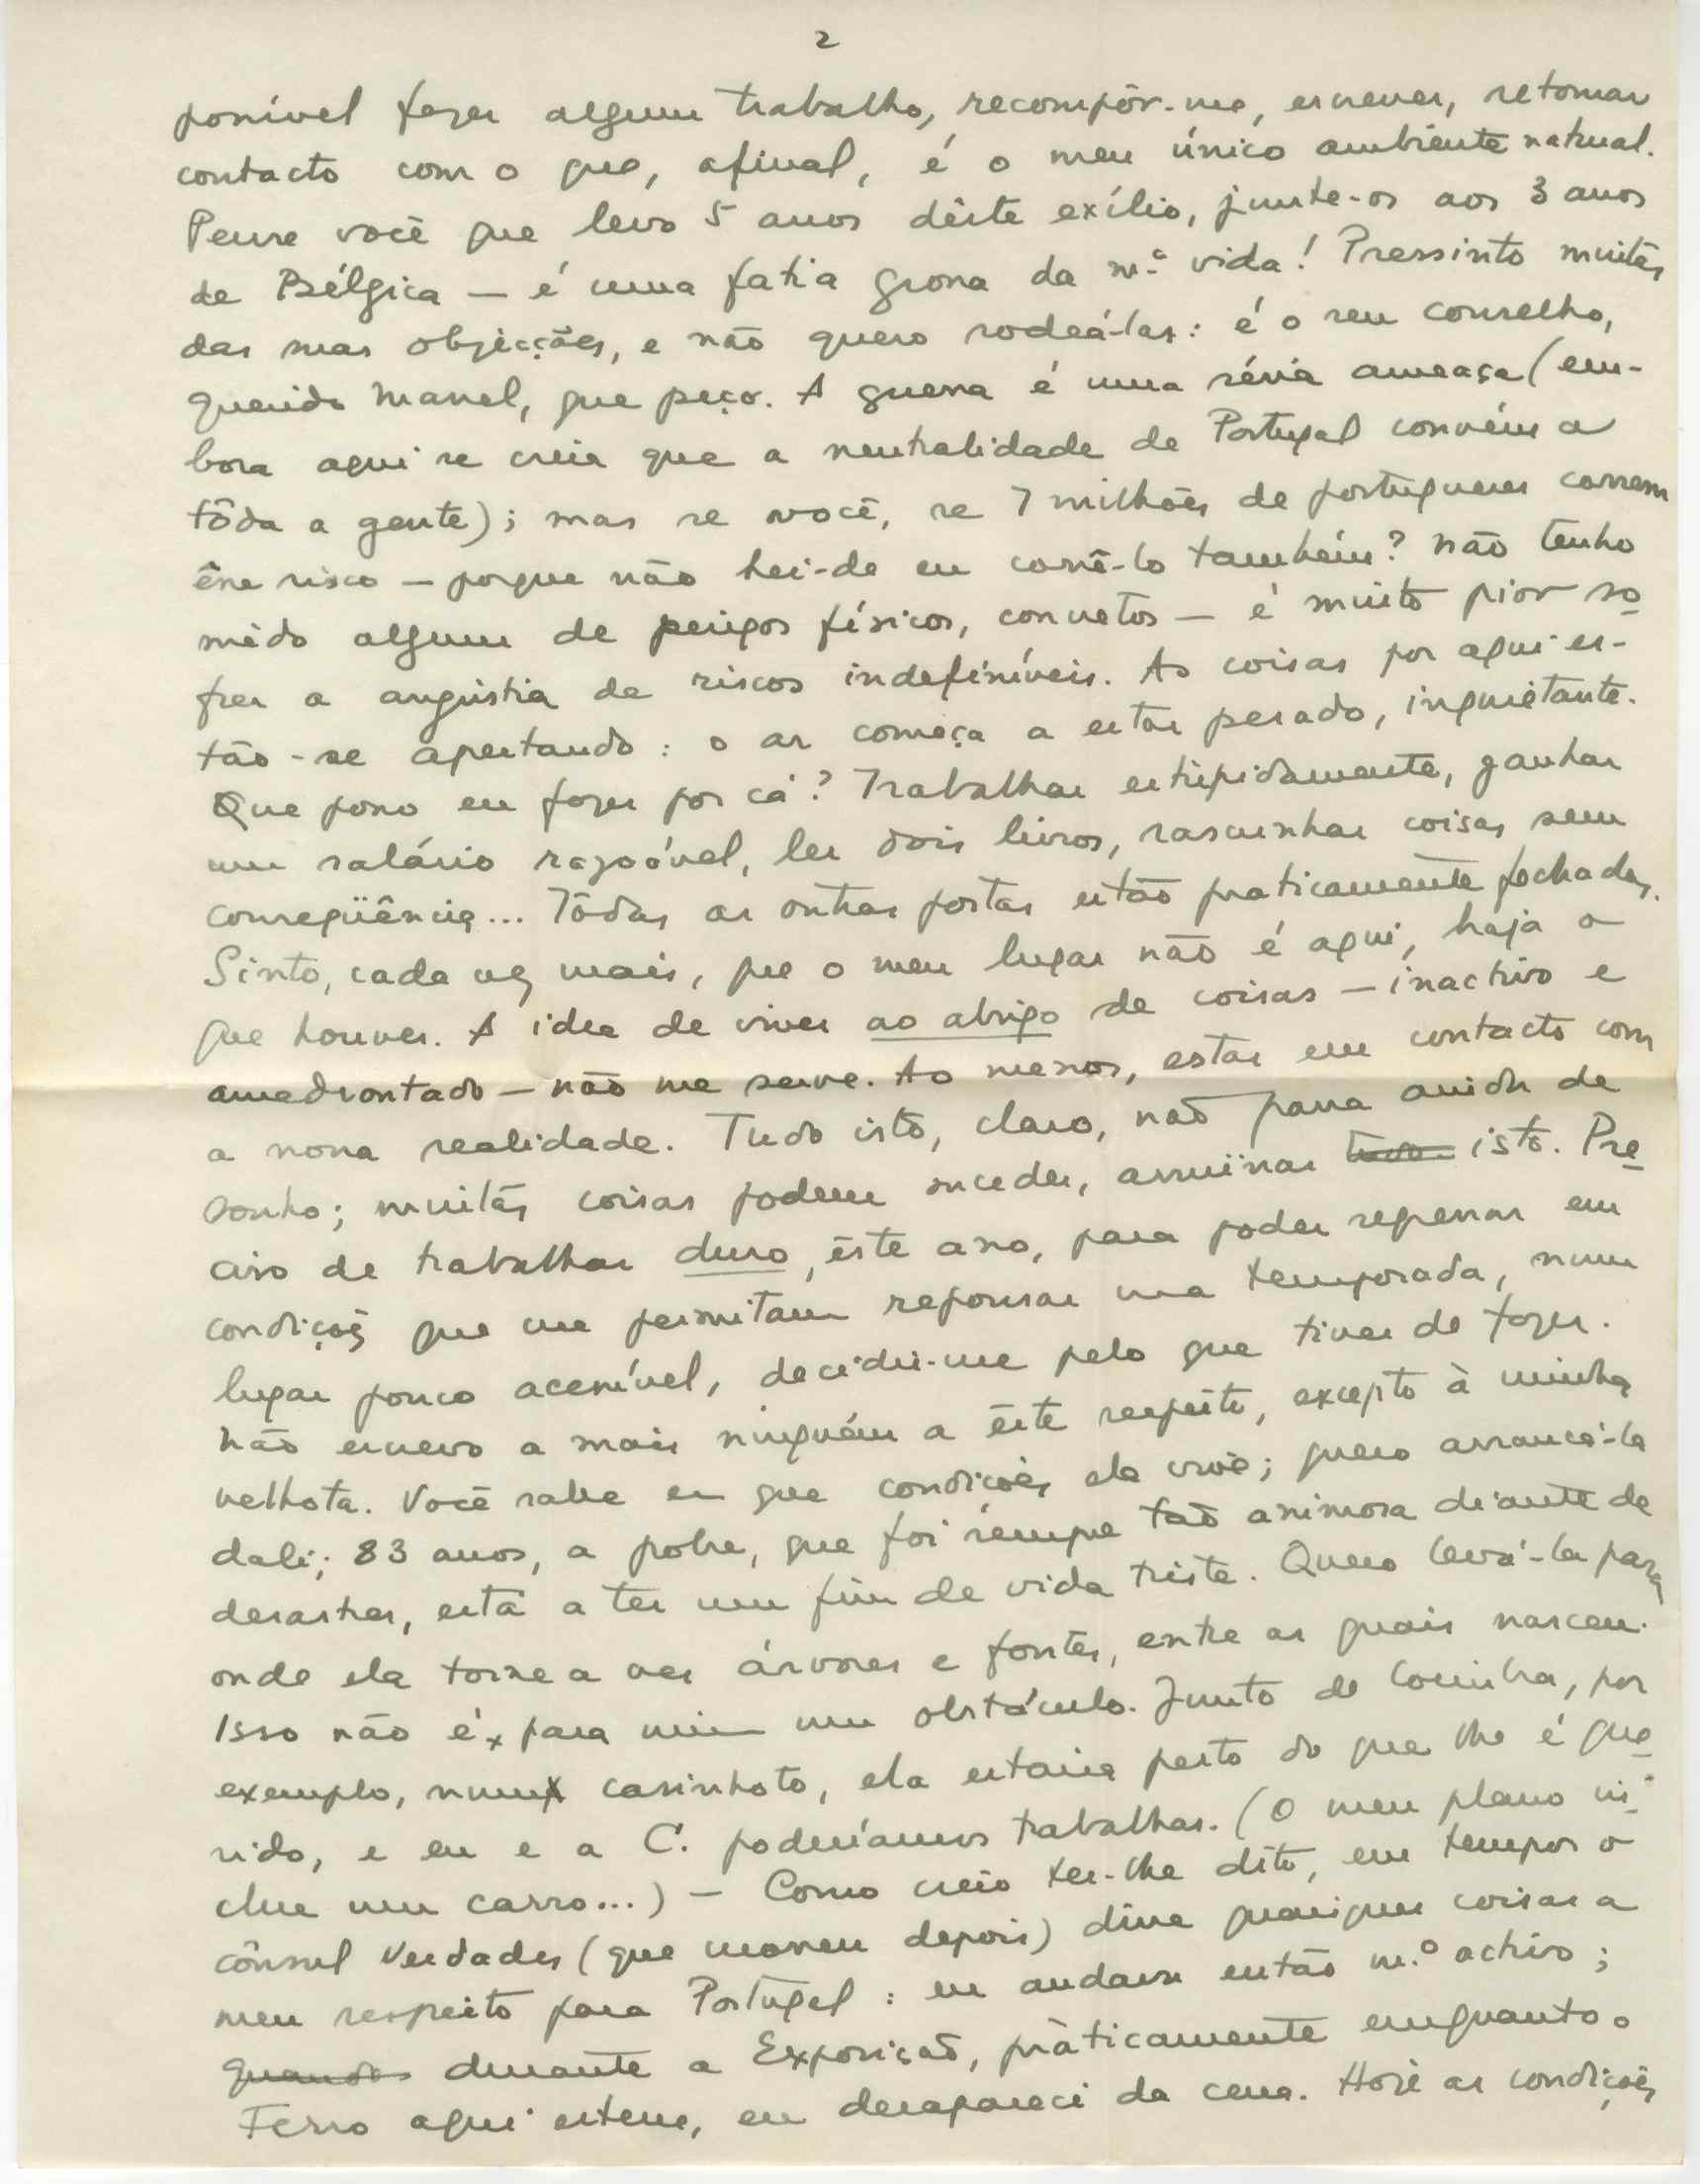 2
ponível fazer algum trabalho, recompôr-me, escrever, retomar
contacto com o que, afinal, é o meu único ambiente natural.
Pense você que levo 5 anos dêste exílio, junte-os aos 3 anos
de Bélgica — é uma fatia grossa da m.ª vida! Pressinto muitas
das suas objecções, e não quero rodeá-las: é o seu conselho,
querido Manel, que peço. A guerra é uma séria ameaça (em-
bora aqui se creia que a neutralidade de Portugal convém a
tôda a gente); mas se você, se 7 milhões de portugueses correm
êsse risco — porque não hei-de eu corrê-lo também? Não tenho
mêdo algum de perigos físicos, concretos — é muito pior so-
frer a angústia de riscos indefiníveis. As coisas por aqui es-
tão-se apertando: o ar começa a estar pesado, inquietante.
Que posso eu fazer por cá? Trabalhar estùpidamente, ganhar
um salário razoável, ler dois livros, rascunhar coisas sem
conseqüência... Tôdas as outras portas estão praticamente fechadas.
Sinto, cada vez mais, que o meu lugar não é aqui, haja o
que houver. A idea de viver ao abrigo de coisas — inactivo e
amedrontado — não me serve. Ao menos, estar em contacto com
a nossa realidade. Tudo isto, claro, não passa ainda de
sonho; muitas coisas podem suceder, arruïnar isto. Pre-
ciso de trabalhar duro, êste ano, para poder regressar em
condições que me permitam repousar uma temporada, num
lugar pouco acessível, decidir-me pelo que tiver de fazer.
Não escrevo a mais ninguém a êste respeito, excepto à minha
velhota. Você sabe em que condições ela vive; quero arrancá-la
dali; 83 anos, a pobre, que foi sempre tão animosa diante de
desastres, está a ter um fim de vida triste. Quero levá-la para
onde ela torne a ver árvores e fontes, entre as quais nasceu.
Isso não é para mim um obstáculo. Junto de Coimbra, por
exemplo, num casinhoto, ela estaria perto do que lhe é que-
rido, e eu e a C. poderíamos trabalhar. (O meu plano in-
clue um carro...) — Como creio ter-lhe dito, em tempos o
cônsul Verdades (que morreu depois) disse quaisquer coisas a
meu respeito para Portugal: eu andava então m.º activo;
quando durante a Exposição, pràticamente emquanto o
Ferro aqui esteve, eu desapareci da cena. Hoje as condições